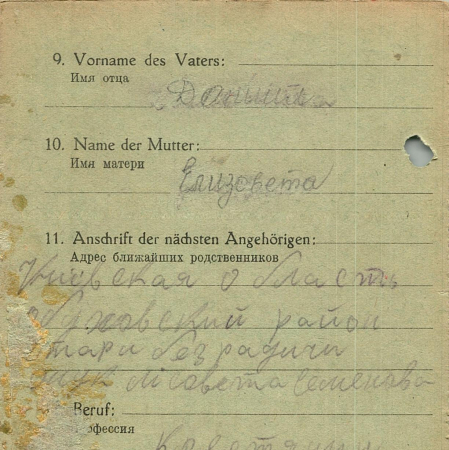 9. Vorname des Vaters:
Имя отца
Данилка
10. Name der Mutter:
Имя матери
Елизовета
11. Anschrift der nächsten Angehörigen:
Адрес ближайших родственников
Киевская область
обуховский район
стари безрадичи
лісовета Семенова
Beruf: